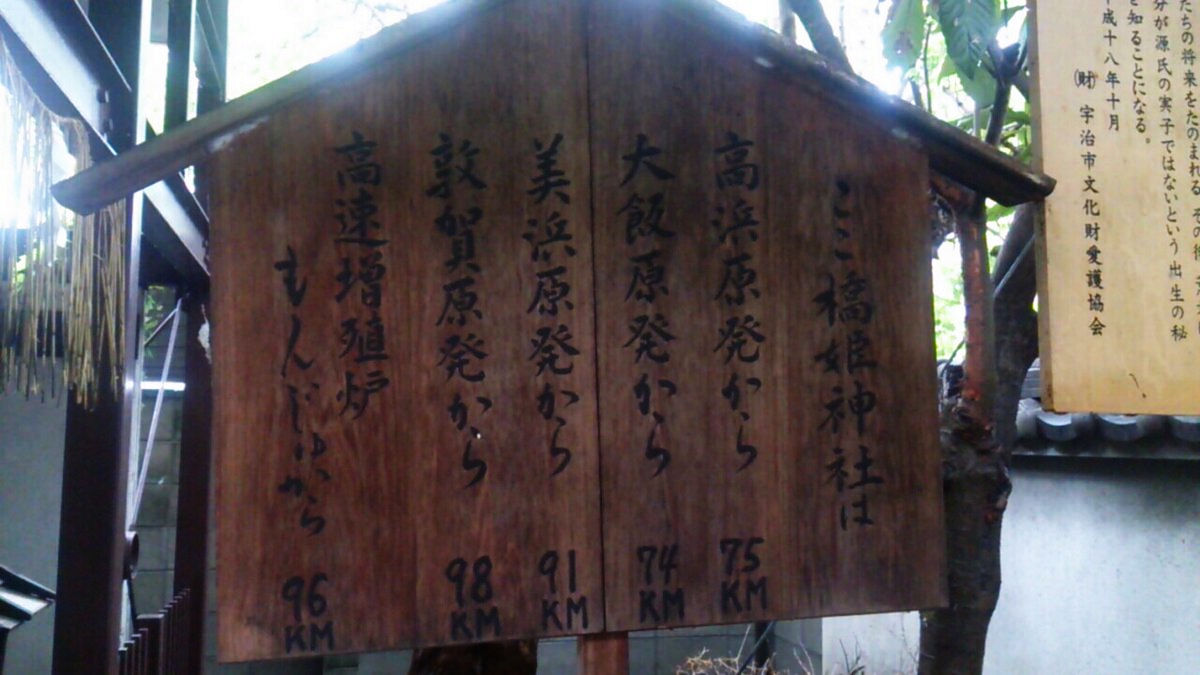 ここ橋姫神社は
高浜原発から 75KM
大飯原発から 74KM
美浜原発から 91KM
敦賀原発から 98KM
高速増殖炉
もんじゅから 96KM
たちの将来をたのまれる
分が源氏の実子ではないという出生の秘
を知ることになる。
平成十八年十月
(財)宇治市文化財愛護協会